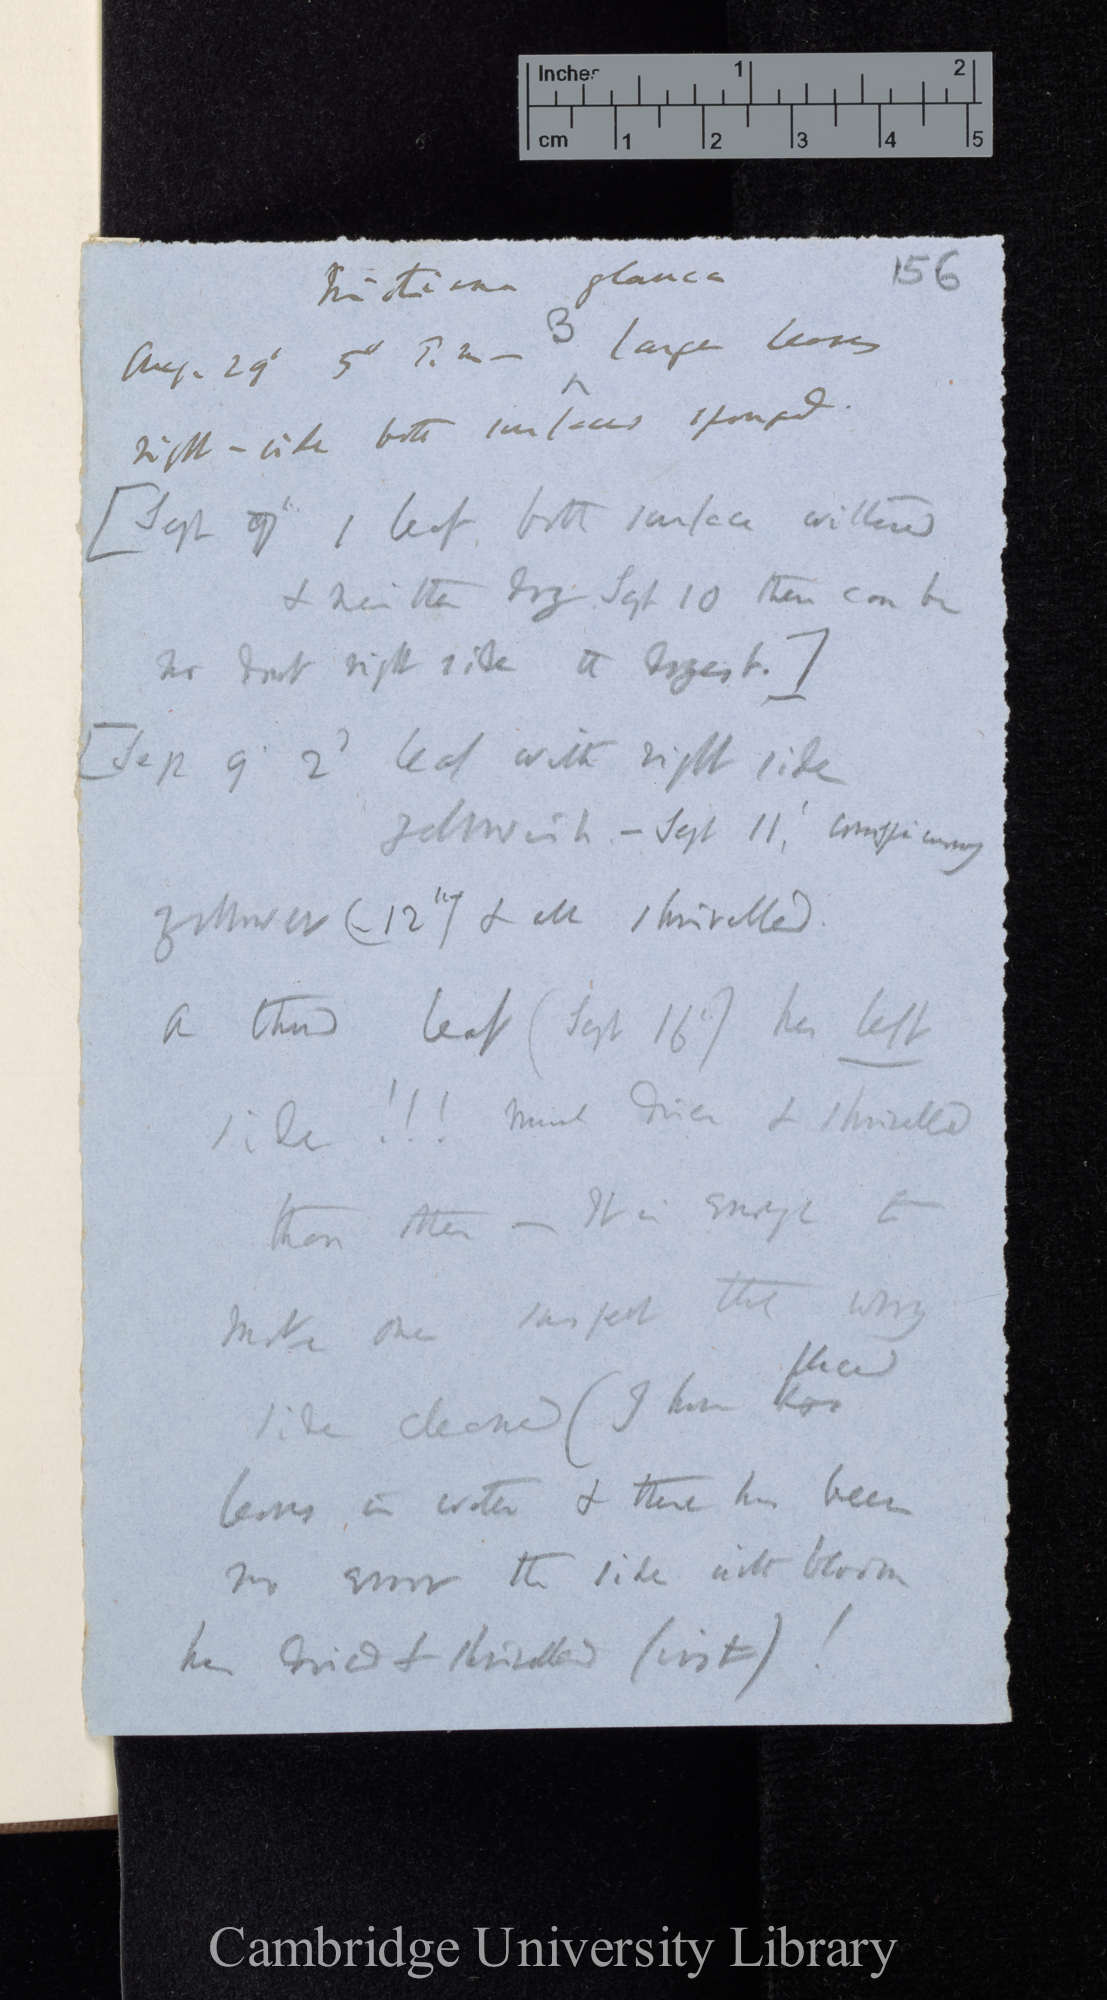 Inches 1 2
cm 1 2 3 4 5
156
glauca
Aug. 29' 5' P.m — 3 large leaves
right-side both surfaces sponged.
[Sept 9" 1 leaf. both surface withered
& neither dry Sept 10 there can be
no doubt right side the dryest.]
[Sep 9' 2' leaf with right side
yellowish. — Sept 11,' conspicuously
yellower (12th) & all shrivelled.
A third leaf (Sept 16") has left
side !!! much drier & shrivelled
than other — It is enough to
make one suspect the wrong
side cleaned (I have placed
leaves in water & there has been
no error the side with bloom
has dried & shrivelled (first) !
Cambridge University Library